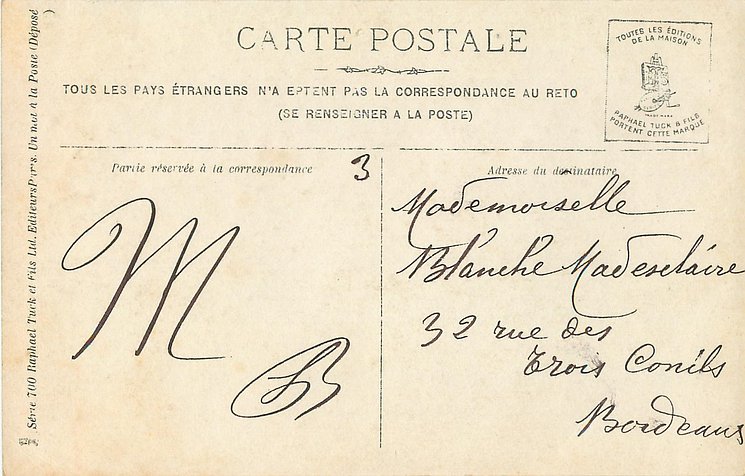 CARTE POSTALE
TOUS LES PAYS ÉTRANGERS N'A EPTENT PAS LA CORRESPONDANCE AU RETO
(SE RENSEIGNER A LA POSTE)
TOUTES LES ÉDITIONS
DE LA MAISON
RAPHAEL TUCK & FILS
PORTENT CETTE MARQUE
Partie réservée à la correspondance
3
M
B
Adresse du destinataire
Mademoiselle
Blanche Madeselaire
32 rue des
Trois Conils
Bordeaux
Série 700 Raphael Tuck et Fils Ltd. Editeurs Par's. Un mot à la Poste (Déposé